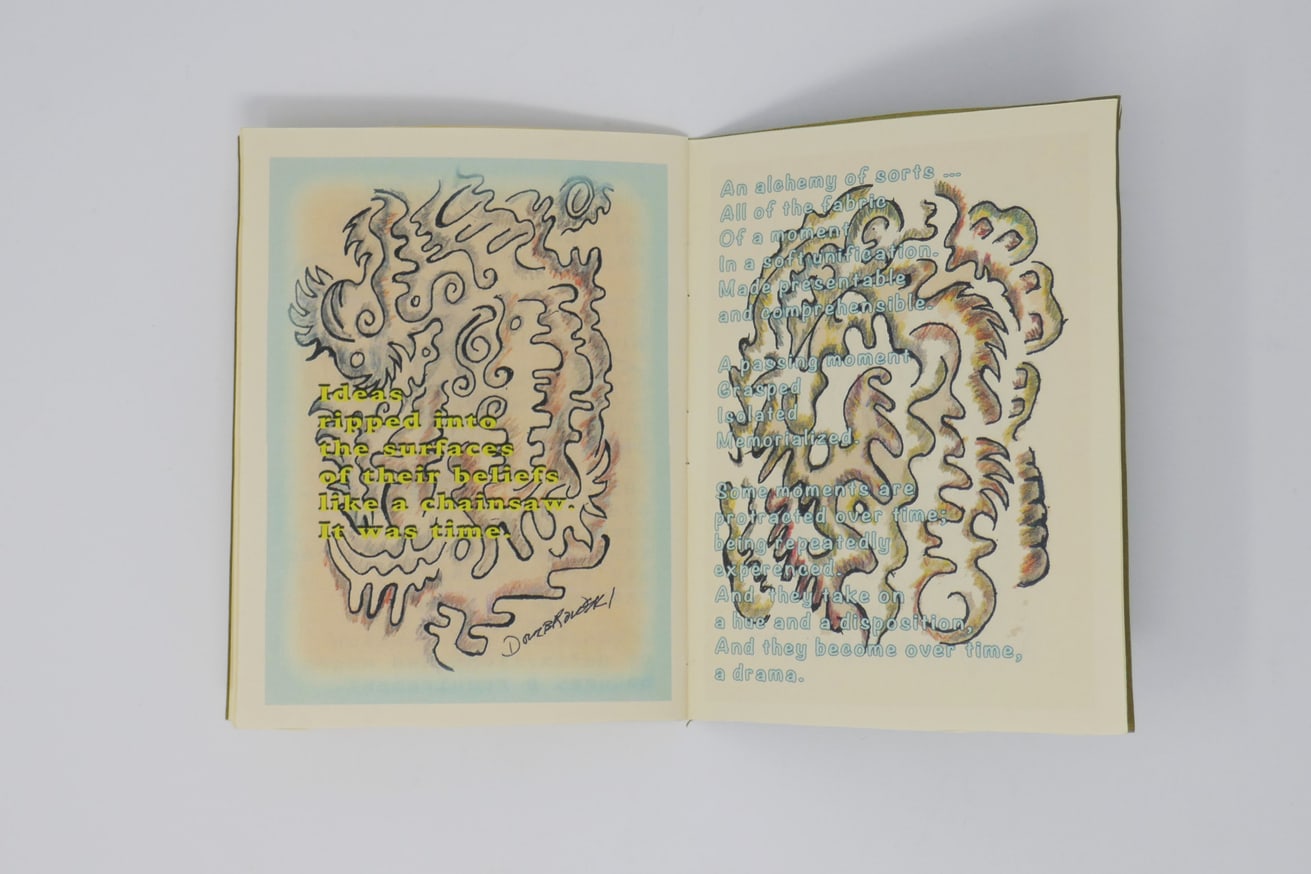 Ideas
ripped into
the surfaces
of their beliefs
like a chainsaw.
It was time.
An alchemy of sorts ...
All of the fabric
Of a moment
In a soft unification.
Made presentable
and comprehensible.
A passing moment
Grasped
Isolated
Memorialized.
Some moments are
protracted over time;
being repeatedly
experenced.
And they take on
a hue and a disposition,
And they become over time,
a drama.